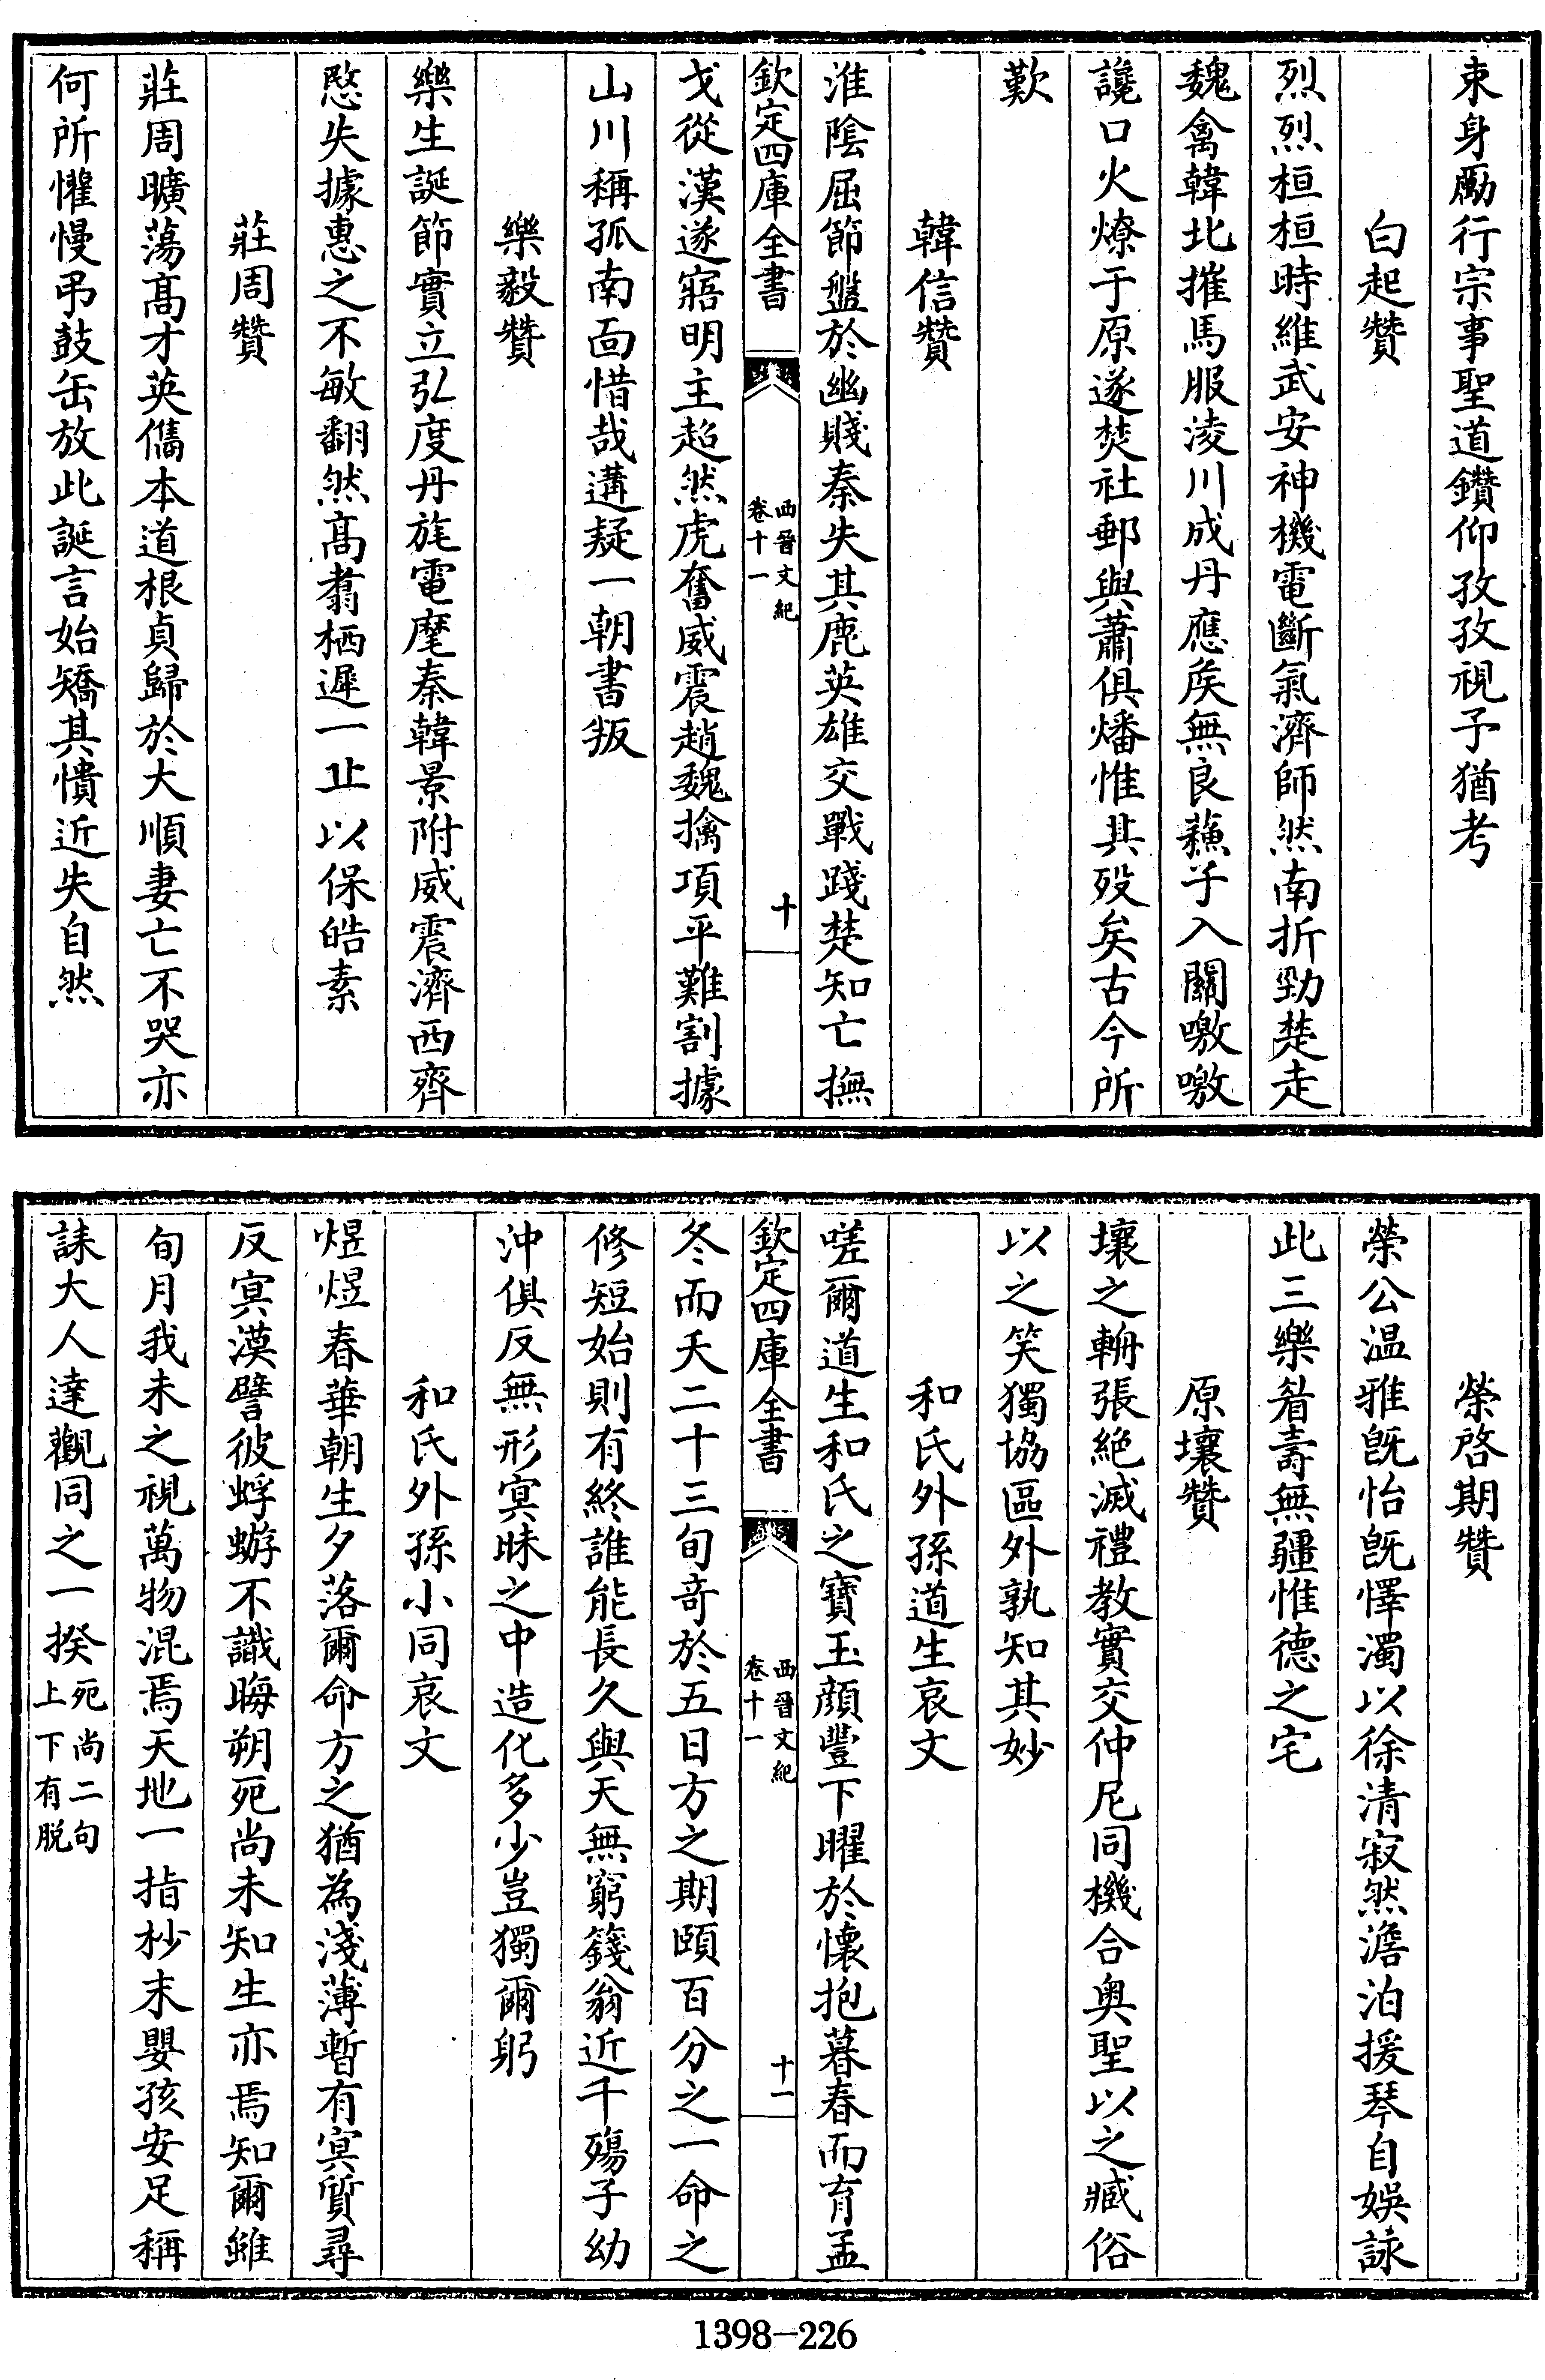 束身勵行宗事聖道鑽仰孜孜視予猶考
白起贊
烈烈桓桓時維武安神機電斷氣濟師然南折勁楚走
魏禽韓北摧馬服淩川成丹應矦無良蘓子入關嗷嗷
讒口火燎于原遂焚社郵與蕭俱燔惟其殁矣古今所
歎
韓信贊
淮陰屈節盤於幽賤秦失其鹿英雄交戰踐楚知亡撫
欽定四庫全書
西晉文紀
卷十一
十
戈從漢遂寤明主超然虎奮威震趙魏擒項平難割據
山川稱孤南面惜哉遘疑一朝書叛
樂毅贊
樂生誕節實立弘度丹旄電麾秦韓景附威震濟西齊
愍失據惠之不敏翻然高翥栖遲一止以保皓素
莊周贊
莊周曠蕩髙才英儁本道根貞歸於大順妻亡不哭亦
何所懼慢弔鼓缶放此誕言始矯其憒近失自然
榮啓期贊
榮公温雅旣怡旣懌濁以徐清寂然澹泊援琴自娛詠
此三樂着壽無疆惟德之宅
原壤贊
壤之輈張絶滅禮教實交仲尼同機合奥聖以之臧俗
以之笑獨協區外孰知其妙
和氏外孫道生哀文
嗟爾道生和氏之寶玉顔豐下曜於懷抱暮春而育孟
欽定四庫全書
西晉文紀
卷十一
十一
冬而夭二十三旬奇於五日方之期頤百分之一命之
修短始則有終誰能長久與天無窮籛翁近千殤子幼
沖俱反無形冥昧之中造化多少豈獨爾躬
和氏外孫小同哀文
煜煜春華朝生夕落爾命方之猶為淺薄暫有冥質尋
反冥漠譬彼蜉蝣不識晦朔死尚未知生亦焉知爾雖
旬月我未之視萬物混焉天地一指杪末嬰孩安足稱
誄大人達觀同之一揆死尚二句
上下有脱
1398—226